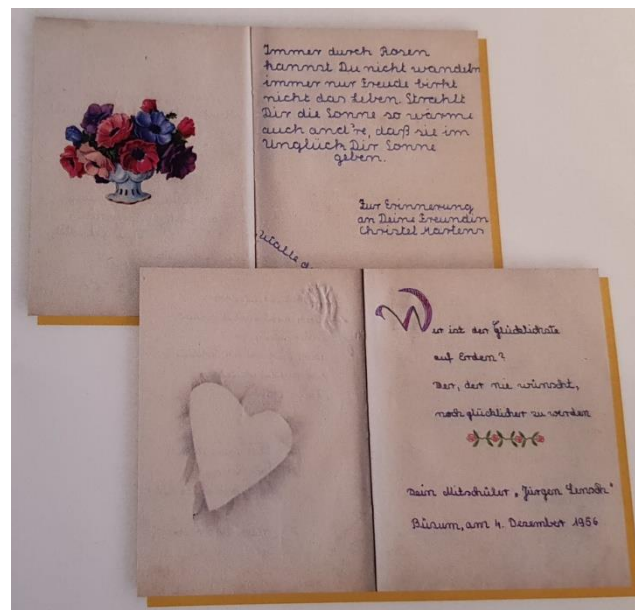 Immer durch Rosen
kannst Du nicht wandeln
immer nur Freude birkt
nicht das Leben. Strahlt
Dir die Sonne so wärme
auch and're, daß sie im
Unglück Dir Sonne
geben.
Zur Erinnerung
an Deine Freundin
Christel Martens
Wer ist der Glücklichste
auf Erden?
Der, der nie wünscht,
noch glücklicher zu werden
Dein Mitschüler „Jürgen Lensch"
Büsum, am 4. Dezember 1956